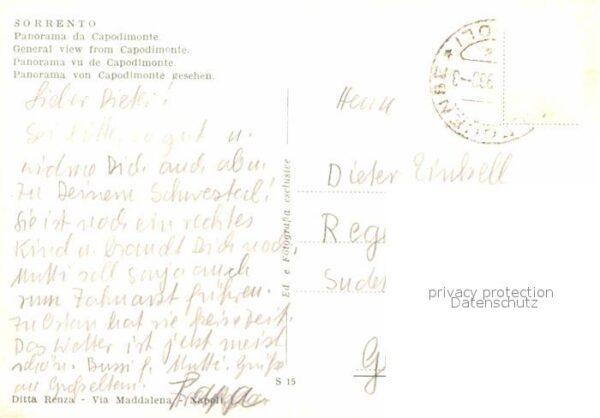 SORRENTO
Panorama da Capodimonte.
General view from Capodimonte.
Panorama vu de Capodimonte.
Panorama von Capodimonte gesehen.
Lieber Dieter!
Sei bitte so gut u.
widme Dich auch aber
zu Deinem Schwesterl!
Sie ist noch ein rechtes
Kind u. braucht Dich noch,
Mutti soll sonja auch
zum Zahnarzt führen.
Zu Ostern hat sie freizeit.
Das Wetter ist jetzt meist
schön. Bussi f. Mutti. Grüße
an Großeltern.
Papa
Herrn
Dieter
Reg
Sudet
G
Ed. e Fotografia esclusive
S 15
Ditta Renza - Via Maddalena - Napoli
privacy protection
Datenschutz